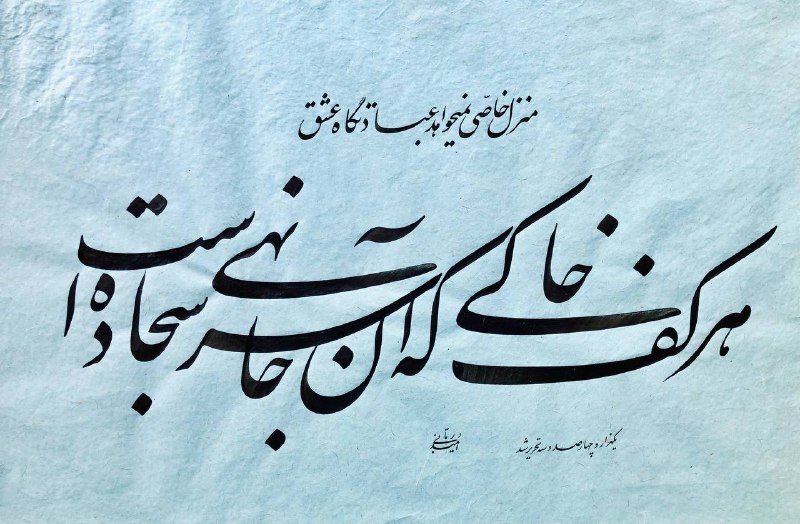 منزل خاصّی نمیخواهد عبادتگاه عشق
هر کف خاکی که آن جا سر نهی سجاده است
یکهزار و چهارصد و سه تحریر شد